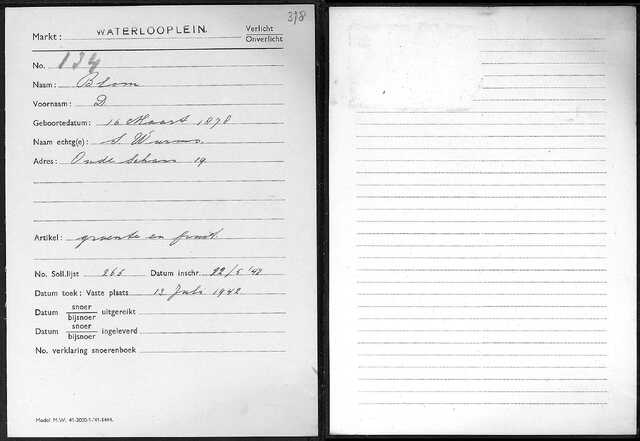 378
Markt: WATERLOOPLEIN. Verlicht
Onverlicht
No. 134
Naam: Blom
Voornaam: D
Geboortedatum: 16 Maart 1878
Naam echtg(e): S. Wurms.
Adres: Oude Schans 19
Artikel: groente en fruit
No. Soll.lijst 266 Datum inschr. 22/5 '42
Datum toek: Vaste plaats 13 Juli 1942
Datum snoer
bijsnoer uitgereikt
Datum snoer
bijsnoer ingeleverd
No. verklaring snoerenboek